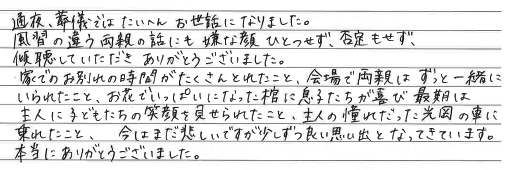 通夜、葬儀ではたいへんお世話になりました。
風習の違う両親の話にも嫌な顔ひとつせず、否定もせず、
傾聴していただきありがとうございました。
家でのお別れの時間がたくさんとれたこと、会場で両親はずっと一緒に
いられたこと、お花でいっぱいになった棺に息子たちが喜び最期は
主人に子どもたちの笑顔を見せられたこと、主人の憧れだった光岡の車に
乗れたこと、今はまだ悲しいですが少しずつ良い思い出となってきています。
本当にありがとうございました。